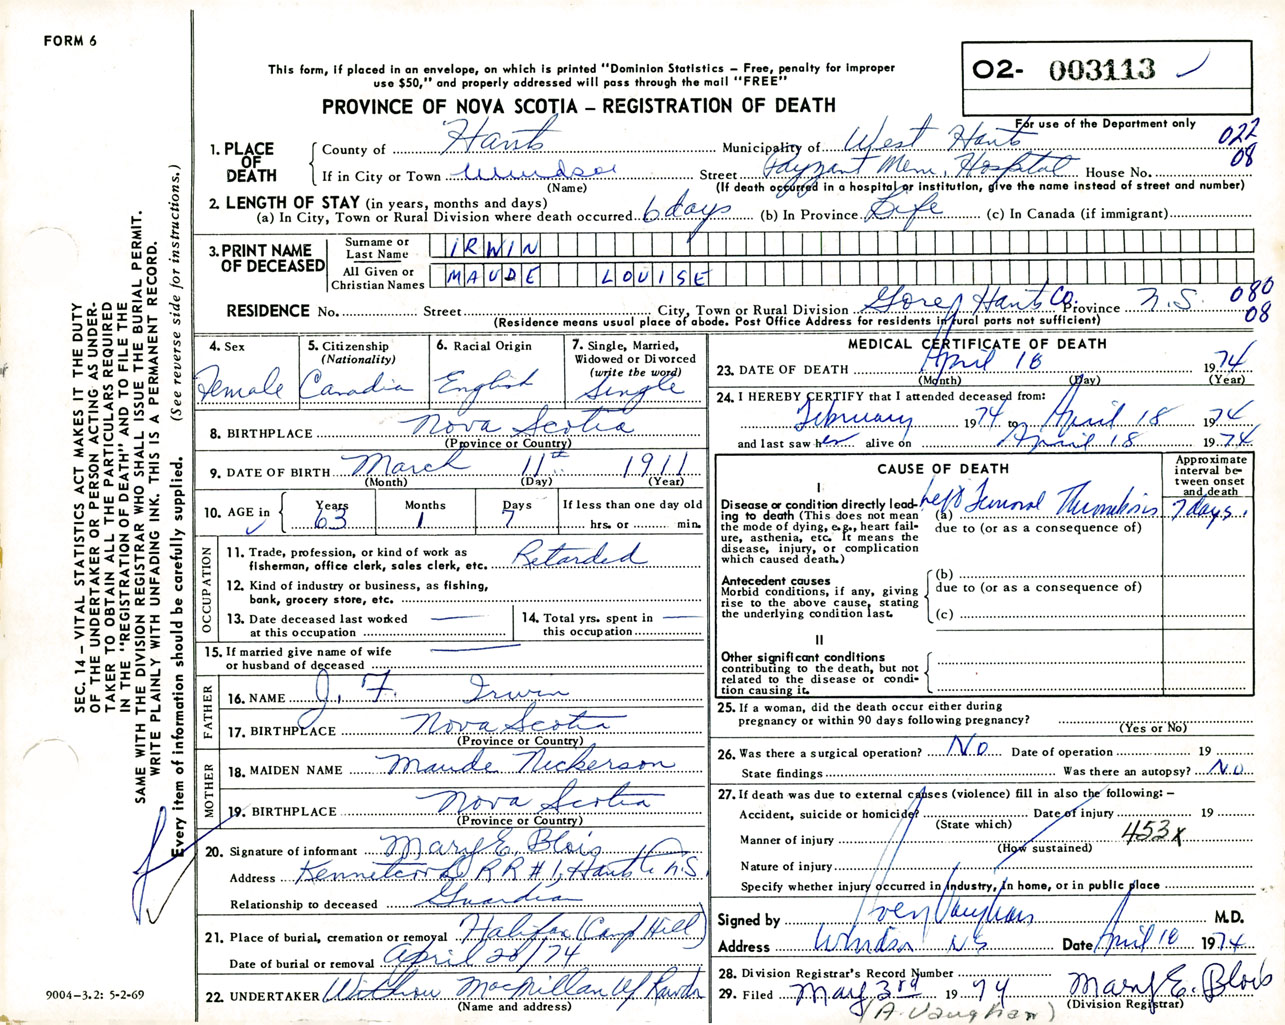 FORM 6
This form, if placed in an envelope, on which is printed "Dominion Statistics – Free, penalty for improper
use $50," and properly addressed will pass through the mail "FREE"
PROVINCE OF NOVA SCOTIA – REGISTRATION OF DEATH
O2- 003113
For use of the Department only
022
08
1. PLACE OF DEATH
County of Hants Municipality of West Hants
If in City or Town Windsor Street Payzant Mem. Hospital House No.
(Name) (If death occurred in a hospital or institution, give the name instead of street and number)
2. LENGTH OF STAY (in years, months and days)
(a) In City, Town or Rural Division where death occurred 6 days (b) In Province Life (c) In Canada (if immigrant)
3. PRINT NAME OF DECEASED
Surname or Last Name IRWIN
All Given or Christian Names MAUDE LOUISE
RESIDENCE No. Street City, Town or Rural Division Gore, Hants Co. Province N.S. 080
08
(Residence means usual place of abode. Post Office Address for residents in rural parts not sufficient)
4. Sex
Female
5. Citizenship
(Nationality)
Canadia
6. Racial Origin
English
7. Single, Married,
Widowed or Divorced
(write the word)
Single
8. BIRTHPLACE Nova Scotia
(Province or Country)
9. DATE OF BIRTH March 11th 1911
(Month) (Day) (Year)
10. AGE in Years 63 Months 1 Days 7
If less than one day old
hrs. or min.
OCCUPATION
11. Trade, profession, or kind of work as
fisherman, office clerk, sales clerk, etc. Retarded
12. Kind of industry or business, as fishing,
bank, grocery store, etc.
13. Date deceased last worked
at this occupation
14. Total yrs. spent in
this occupation
15. If married give name of wife
or husband of deceased
FATHER
16. NAME J. F. Irwin
17. BIRTHPLACE Nova Scotia
(Province or Country)
MOTHER
18. MAIDEN NAME Maude Nickerson
19. BIRTHPLACE Nova Scotia
(Province or Country)
20. Signature of informant Mary E. Blois
Address Kennetcook RR #1, Hants Co N.S.
Relationship to deceased Guardian
21. Place of burial, cremation or removal Halifax (Camp Hill)
Date of burial or removal April 20/74
22. UNDERTAKER MacMillan Rawdon
(Name and address)
MEDICAL CERTIFICATE OF DEATH
23. DATE OF DEATH April 18 1974
(Month) (Day) (Year)
24. I HEREBY CERTIFY that I attended deceased from:
February 1974 to April 18 1974
and last saw her alive on April 18 1974
CAUSE OF DEATH
Approximate
interval be-
tween onset
and death
I
Disease or condition directly lead-
ing to death (This does not mean
the mode of dying, e.g., heart fail-
ure, asthenia, etc. It means the
disease, injury, or complication
which caused death.)
(a) Left Femoral Thrombosis 7 days.
due to (or as a consequence of)
Antecedent causes
Morbid conditions, if any, giving
rise to the above cause, stating
the underlying condition last.
(b)
due to (or as a consequence of)
(c)
II
Other significant conditions
contributing to the death, but not
related to the disease or condi-
tion causing it.
25. If a woman, did the death occur either during
pregnancy or within 90 days following pregnancy?
(Yes or No)
26. Was there a surgical operation? No Date of operation 19
State findings Was there an autopsy? No
27. If death was due to external causes (violence) fill in also the following: –
Accident, suicide or homicide? Date of injury 19
(State which)
Manner of injury 453X
(How sustained)
Nature of injury
Specify whether injury occurred in industry, in home, or in public place
Signed by Vaughan M.D.
Address Windsor NS Date April 18 1974
28. Division Registrar's Record Number
29. Filed May 3rd 1974 Mary E. Blois
(Division Registrar)
(A. Vaughan)
SEC. 14 – VITAL STATISTICS ACT MAKES IT THE DUTY
OF THE UNDERTAKER OR PERSON ACTING AS UNDER-
TAKER TO OBTAIN ALL THE PARTICULARS REQUIRED
IN THE "REGISTRATION OF DEATH" AND TO FILE THE
SAME WITH THE DIVISION REGISTRAR WHO SHALL ISSUE THE BURIAL PERMIT.
WRITE PLAINLY WITH UNFADING INK. THIS IS A PERMANENT RECORD.
Every item of information should be carefully supplied. (See reverse side for instructions.)
9004-3.2: 5-2-69